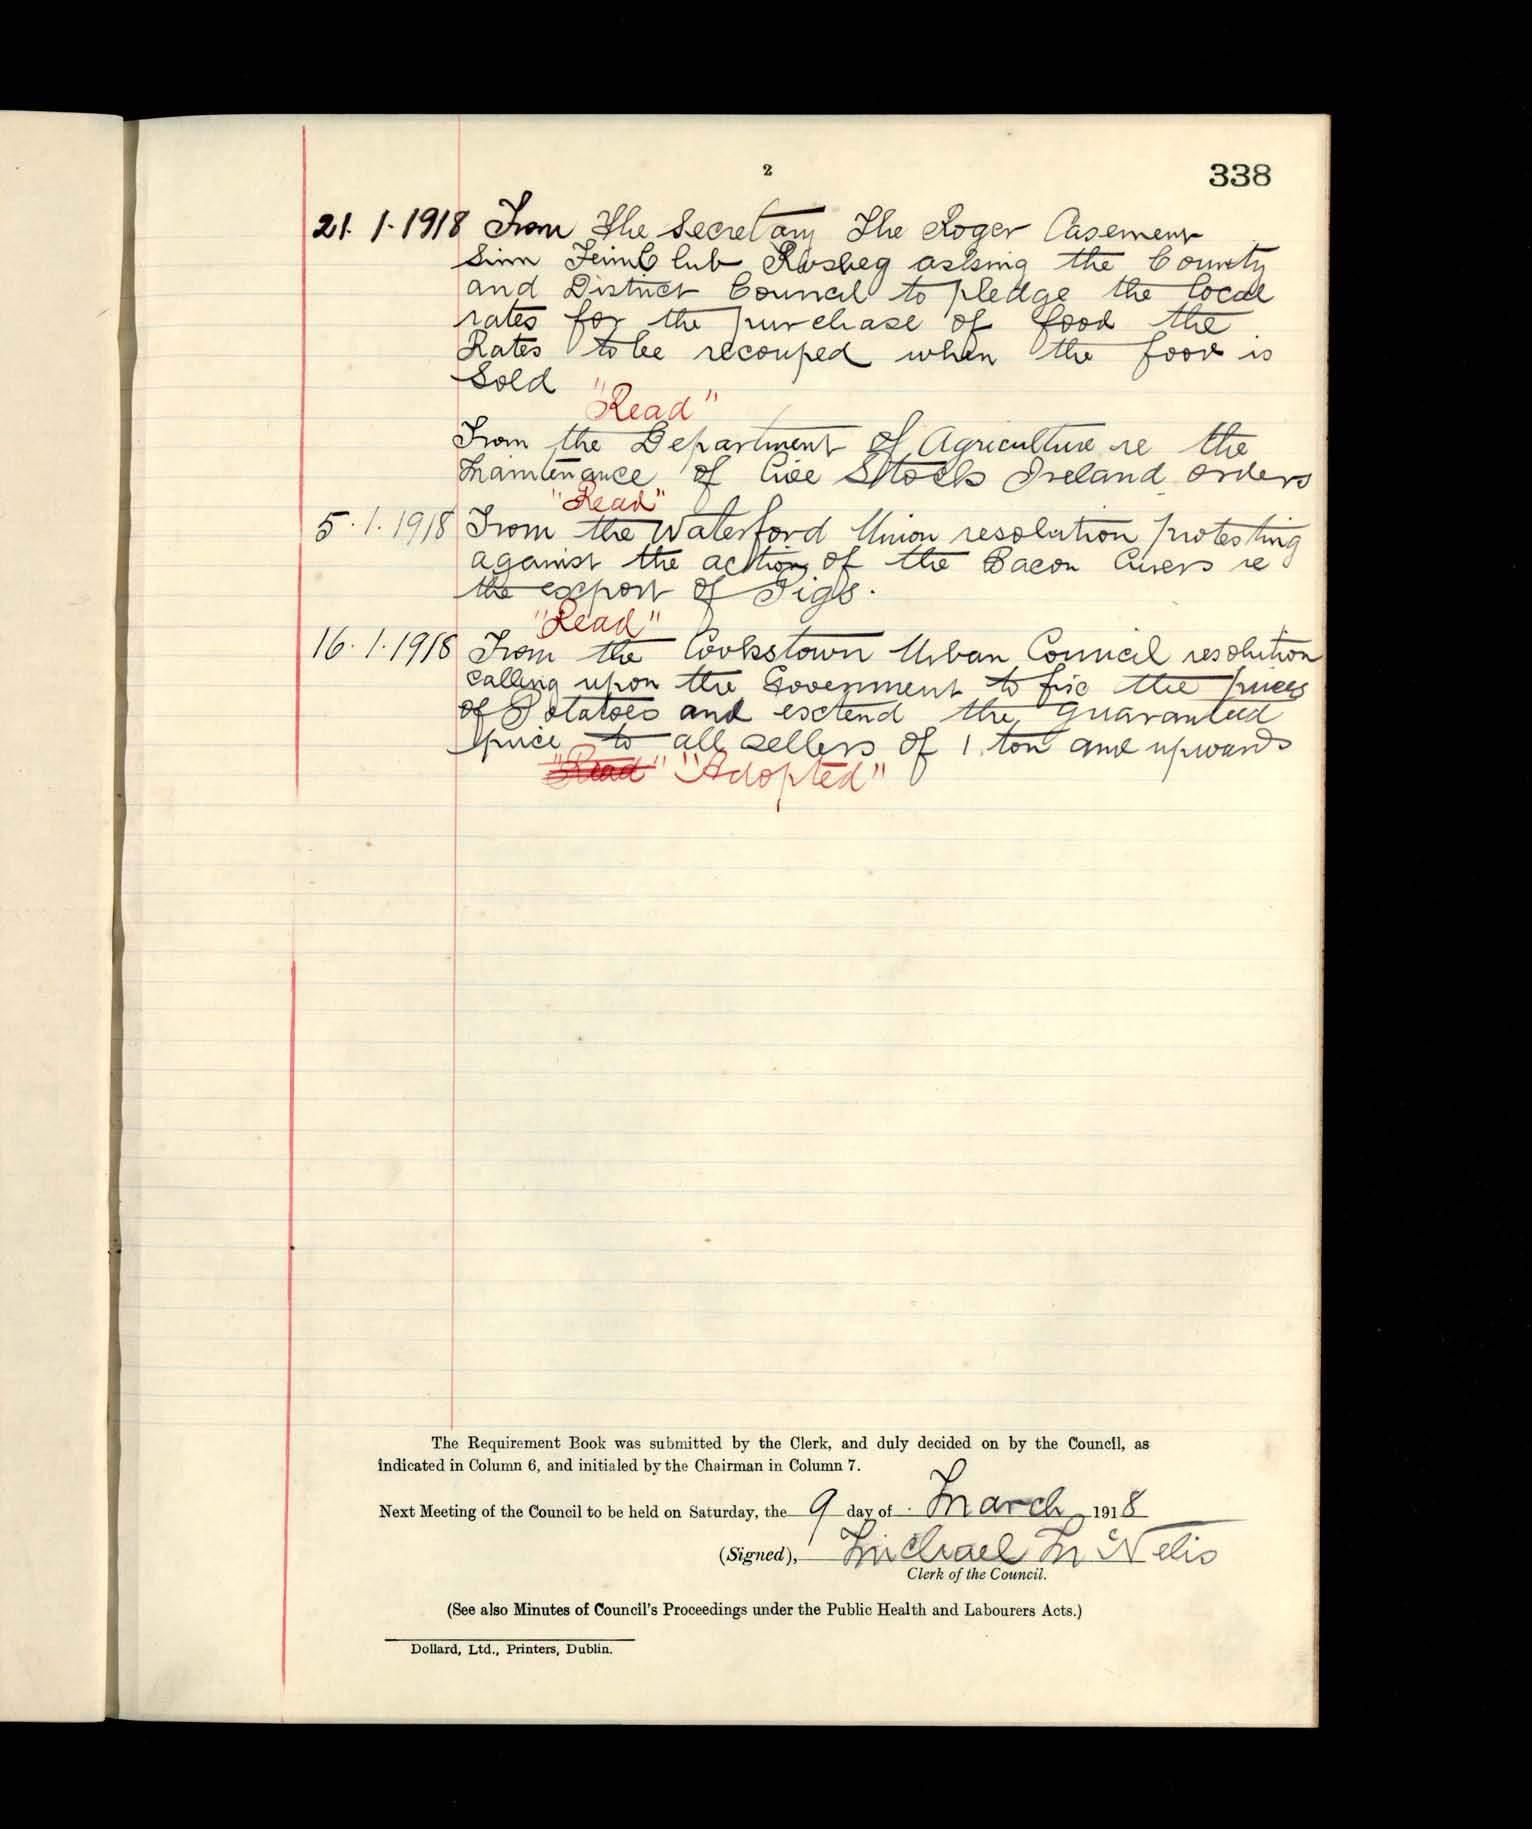 2
338
21. 1. 1918 From The Secretary The Roger Casement
Sinn Fein Club Rosbeg asking the County
and District Council to pledge the local
rates for the purchase of food the
Rates to be recouped when the food is
Sold
"Read"
From the Department of Agriculture re the
Maintenance of Live Stock Ireland orders
"Read"
5. 1. 1918 From the Waterford Union resolution protesting
against the action of the Bacon Curers re
the export of Pigs.
"Read"
16. 1. 1918 From the Cookstown Urban Council resolution
calling upon the Government to fix the prices
of Potatoes and extend the guaranteed
price to all sellers of 1. ton and upwards
"Read" "Adopted"
The Requirement Book was submitted by the Clerk, and duly decided on by the Council, as
indicated in Column 6, and initialed by the Chairman in Column 7.
Next Meeting of the Council to be held on Saturday, the 9 day of March 1918
(Signed), Michael McNelis
Clerk of the Council.
(See also Minutes of Council's Proceedings under the Public Health and Labourers Acts.)
Dollard, Ltd., Printers, Dublin.